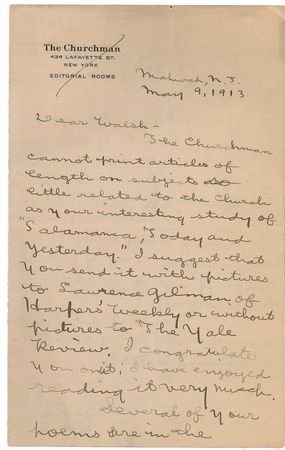 The Churchman
434 LAFAYETTE ST.
NEW YORK
EDITORIAL ROOMS
Mahwah, N. J.
May 9, 1913
Dear Walsh -
The Churchman
cannot print articles of
length on subjects so
little related to the church
as your interesting study of
"Salamanca, Today and
Yesterday." I suggest that
you send it with pictures
to Lawrence Gilman of
Harper's Weekly or without
pictures to The Yale
Review. I congratulate
you on it; I have enjoyed
reading it very much.
Several of your
poems are in the